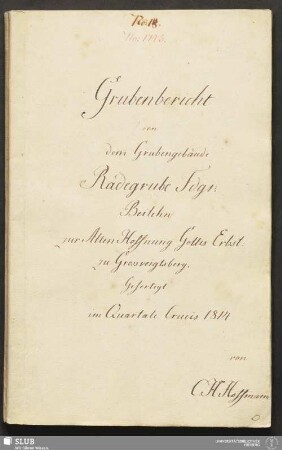 Grubenbericht
von
dem Grubengebäude
Radegrube Fdgr:
Beilehn
zur Alten Hoffnung Gottes Erbst.
zu Grosvoigtsberg.
Gefertigt
im Quartale Crucis 1814
von
C. H. Hoffmann
SLUB
Wir führen Wissen.